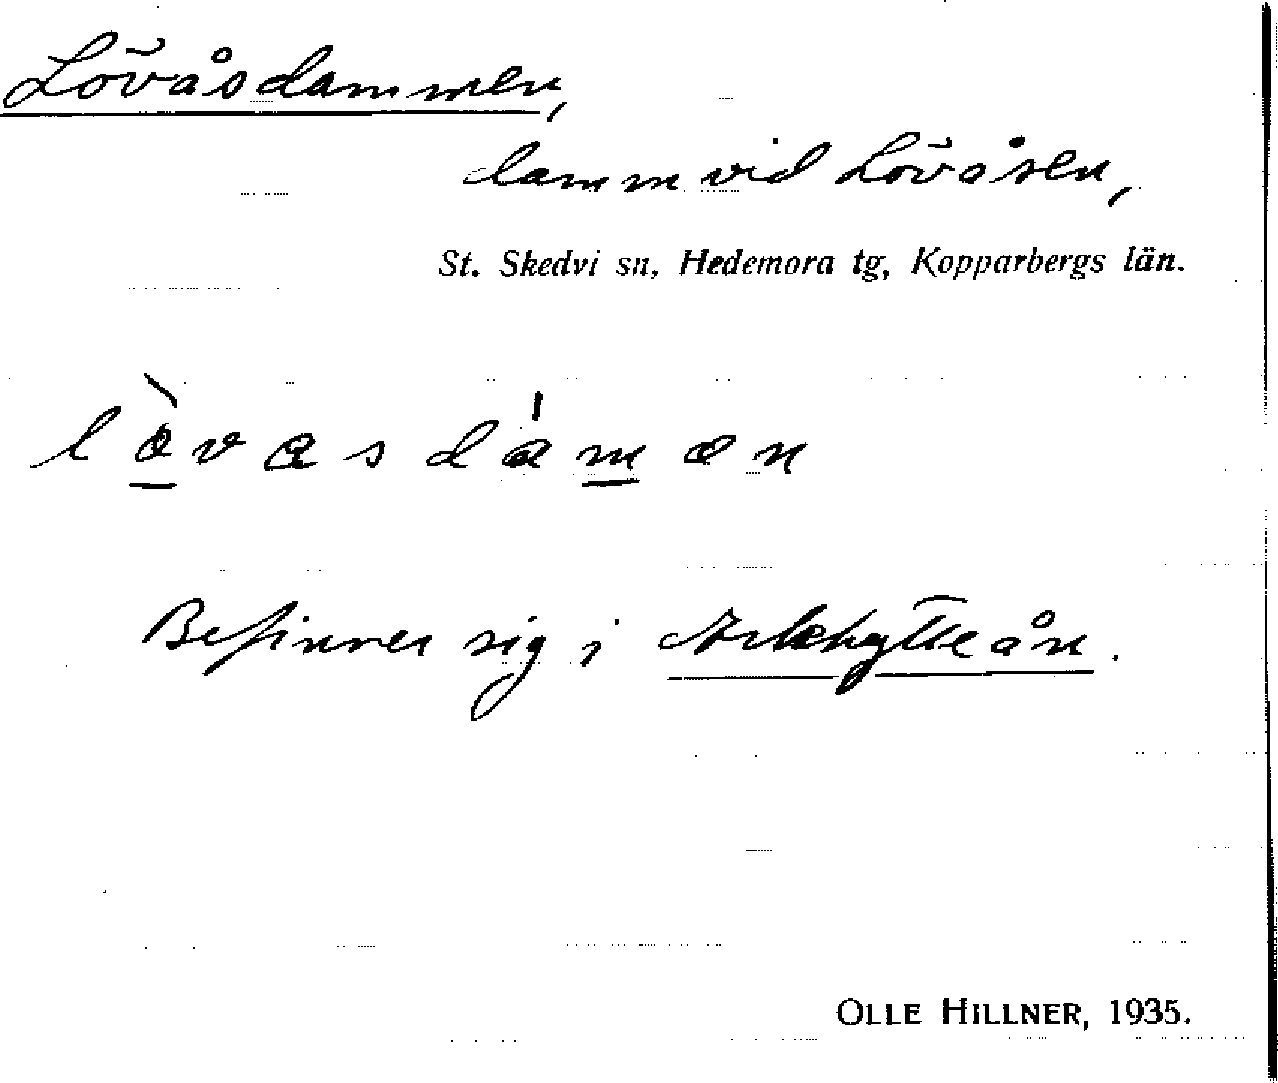 Lövåsdammen,
damm vid Lövåsen,
St. Skedvi sn, Hedemora tg, Kopparbergs län.
Befinner sig i Arkhytteån.
OLLE HILLNER, 1935.